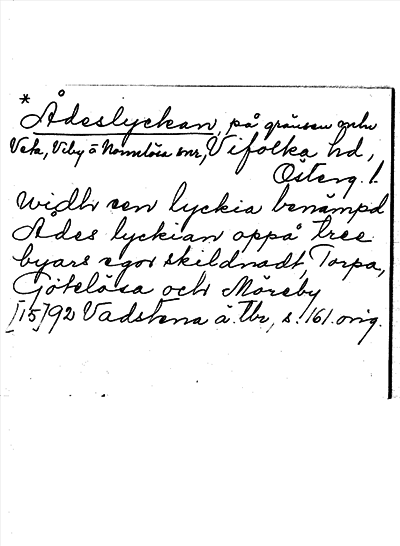 *Ådeslyckan, på gränsen mellan
Veta, Viby o Normlösa snr, Vifolka hd,
Österg. l.
widh een lyckia benämpd
Ådes lyckian oppå tree
byars egor skildnadt, Torpa,
Götelösa och Möreby
[15]92 Vadstena ä. lbr, s. 161. orig.